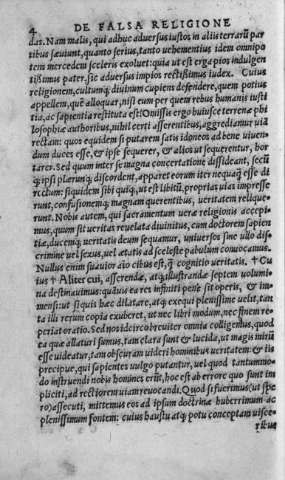 4 DE FALSA RELIGIONE
das. Nam malis, qui adhuc aduersus iustos in aliis terrarū par
tibus sæuiunt, quanto serius, tanto uehementius idem omnipo
tens mercedem sceleris exoluet: quia ut est erga pios indulgen
tissimus pater, sic aduersus impios rectissimus iudex. Cuius
religionem, cultumq; diuinum cupiens defendere, quem potius
appellem, quē alloquar, nisi eum per quem rebus humanis iusti
tia, ac sapientia restituta est? Omissis ergo huiusce terrenæ phi
losophiæ authoribus, nihil certi asserentibus, aggrediamur uiā
rectam: quos equidem si putarem satis idoneos ad bene uiuen-
dum duces esse, & ipse sequerer, & alios ut sequerentur, hor
tarer. Sed quum inter se magna concertatione dissideant, secū
q; ipsi plerumq; discordent, apparet eorum iter nequaq̃ esse di
rectum: siquidem sibi quiq;, ut est libitū, proprias uias impresse
runt, confusionemq; magnam quærentibus, ueritatem relique-
runt. Nobis autem, qui sacramentum uera religionis accepi-
mus, quum sit ueritas reuelata diuinitus, cum doctorem sapien
tiæ, ducemq; ueritatis deum sequamur, uniuersos sine ullo dis
crimine uel sexus, uel ætatis ad cœleste pabulum conuocamus.
Nullus enim suauior aīo cibus est, q̃ cognitio ueritatis. † Cu
ius † Aliter cui, asserendæ, atq; illustrandæ septem uolumi
na destinauimus: quāuis ea res infiniti penè sit operis, & im-
mensi: ut siquis hæc dilatare, atq; exequi plenissime uelit, tan
ta illi rerum copia exuberet, ut nec libri modum, nec finem re-
periat oratio. Sed nos idcirco breuiter omnia colligemus, quod
ea quæ allaturi sumus, tam clara sunt & lucida, ut magis mirū
esse uideatur, tam obscuram uideri hominibus ueritatem: & iis
præcipue, qui sapientes uulgo putantur, uel quod tantummo-
do instruendi nobis homines erūt, hoc est ab errore quo sunt im
pliciti, ad rectiorem uiam reuocandi. Quod si fuerimus (ut spe
ro) assecuti, mittemus eos ad ipsum doctrinæ huberrimum ac
plenissimum fontem: cuius haustu atq; potu conceptam uisce-
ribus